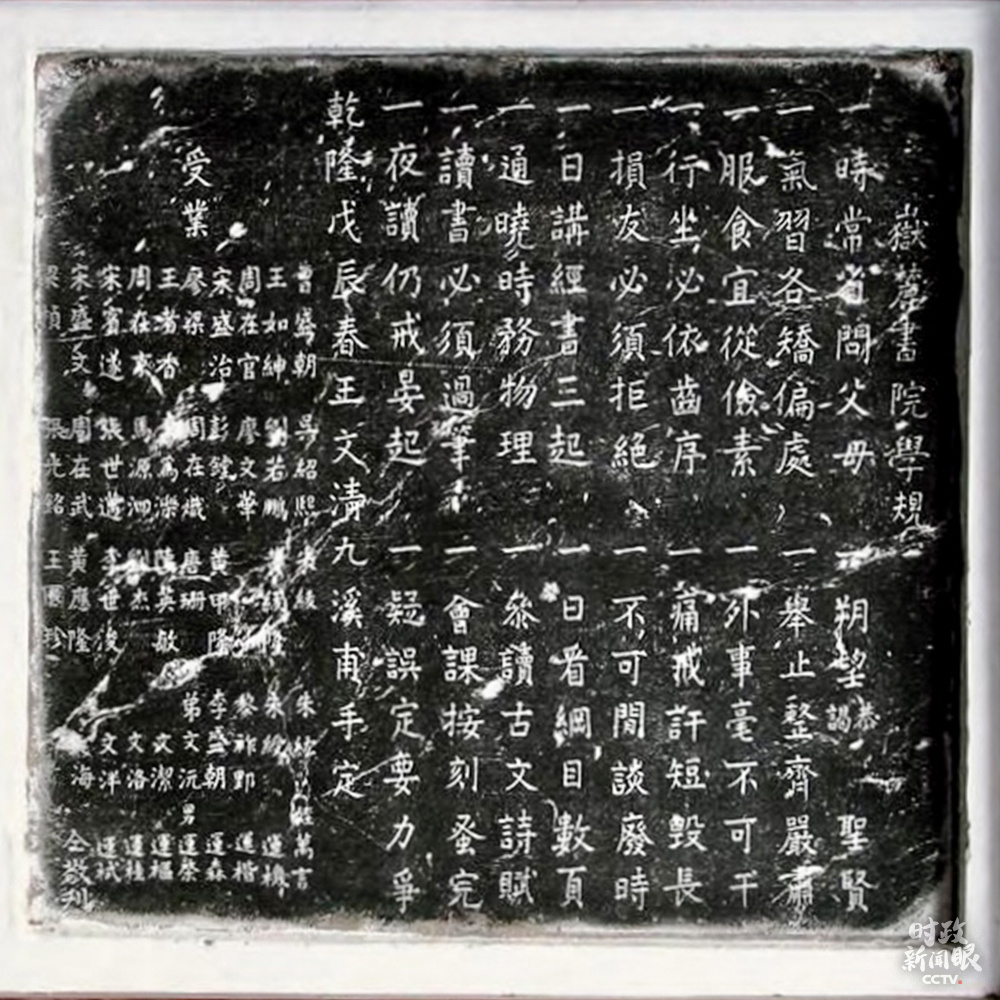 嶽麓書院學規
一時常省問父母 一朔望恭謁聖賢
一氣習各矯偏處 一舉止整齊嚴肅
一服食宜從儉素 一外事毫不可干
一行坐必依齒序 一痛戒訐短毀長
一損友必須拒絕 一不可閒談廢時
一日講經書三起 一日看綱目數頁
一通曉時務物理 一參讀古文詩賦
一讀書必須過筆 一會課按刻蚤完
一夜讀仍戒晏起 一疑誤定要力爭
乾隆戊辰春王文清九溪甫手定
受業
曾盛朝 吳紹熙 朱 姪萬言
王如紳 劉若鵬 隆 朱
周在官 廖文華 黎祚郢 運楷
宋盛治 彭 黃甲隆 李盛朝 運森
廖梁 周在熾 唐珊 弟文沅 男運榮
王者香 為樂 陳英敏 文潔 運樞
周在 馬源泗 劉杰 文洛 運桂
宋賓遂 張世 李世俊 文洋 運栻
宋盛文 周在武 黃應隆 海
梁楨 張先銘 王 珍 仝敬刊
时政
新闻眼
CCTV.